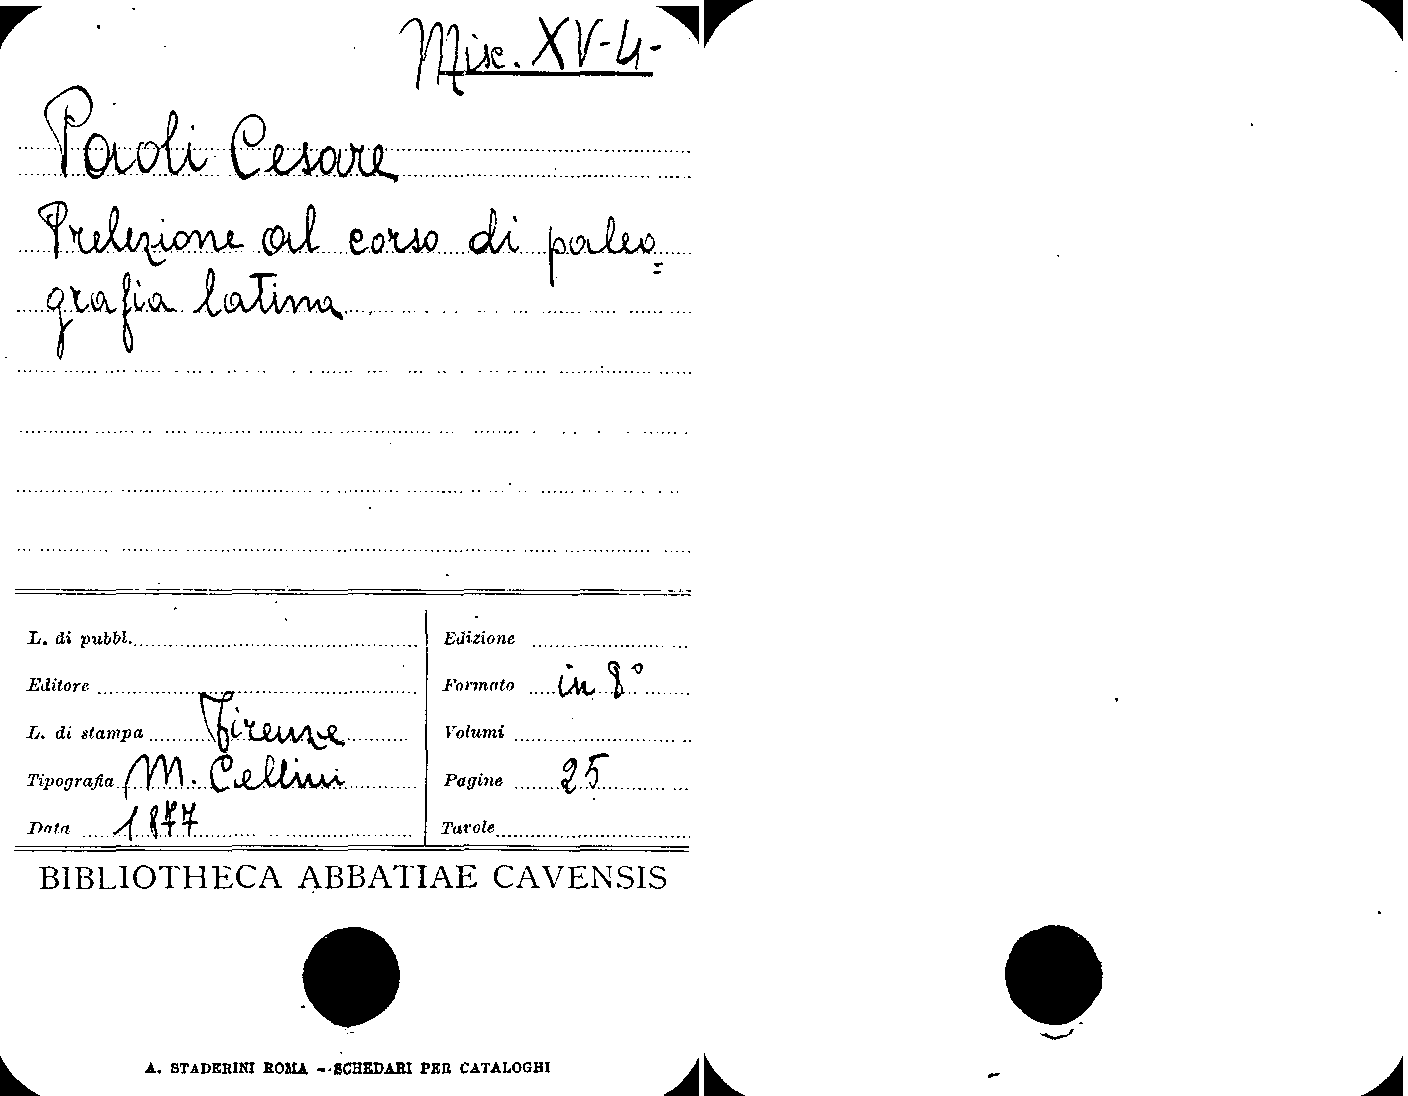 Misc. XV-4-
Paoli Cesare
Prelezione al corso di paleo=
grafia latina
L. di pubbl.
Edizione
Editore
Formato in 8°
L. di stampa Firenze
Volumi
Tipografia M. Cellini
Pagine 25
Data 1877
Tavole
BIBLIOTHECA ABBATIAE CAVENSIS
A. STADERINI ROMA - SCHEDARI PER CATALOGHI